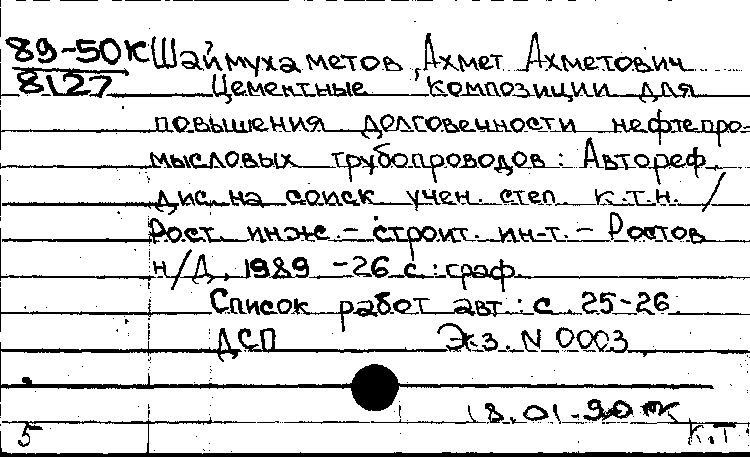 89-50К Шаймухаметов, Ахмет Ахметович
8127 Цементные композиции для
повышения долговечности нефтепро-
мысловых трубопроводов : Автореф.
дис. на соиск учен. степ. к.т.н. /
Рост. инж. - строит. ин-т. - Ростов
н/Д, 1989 - 26 с : граф.
Список работ авт : с. 25-26.
ДСП Экз. N 0003
18.01-90
5 К.Т